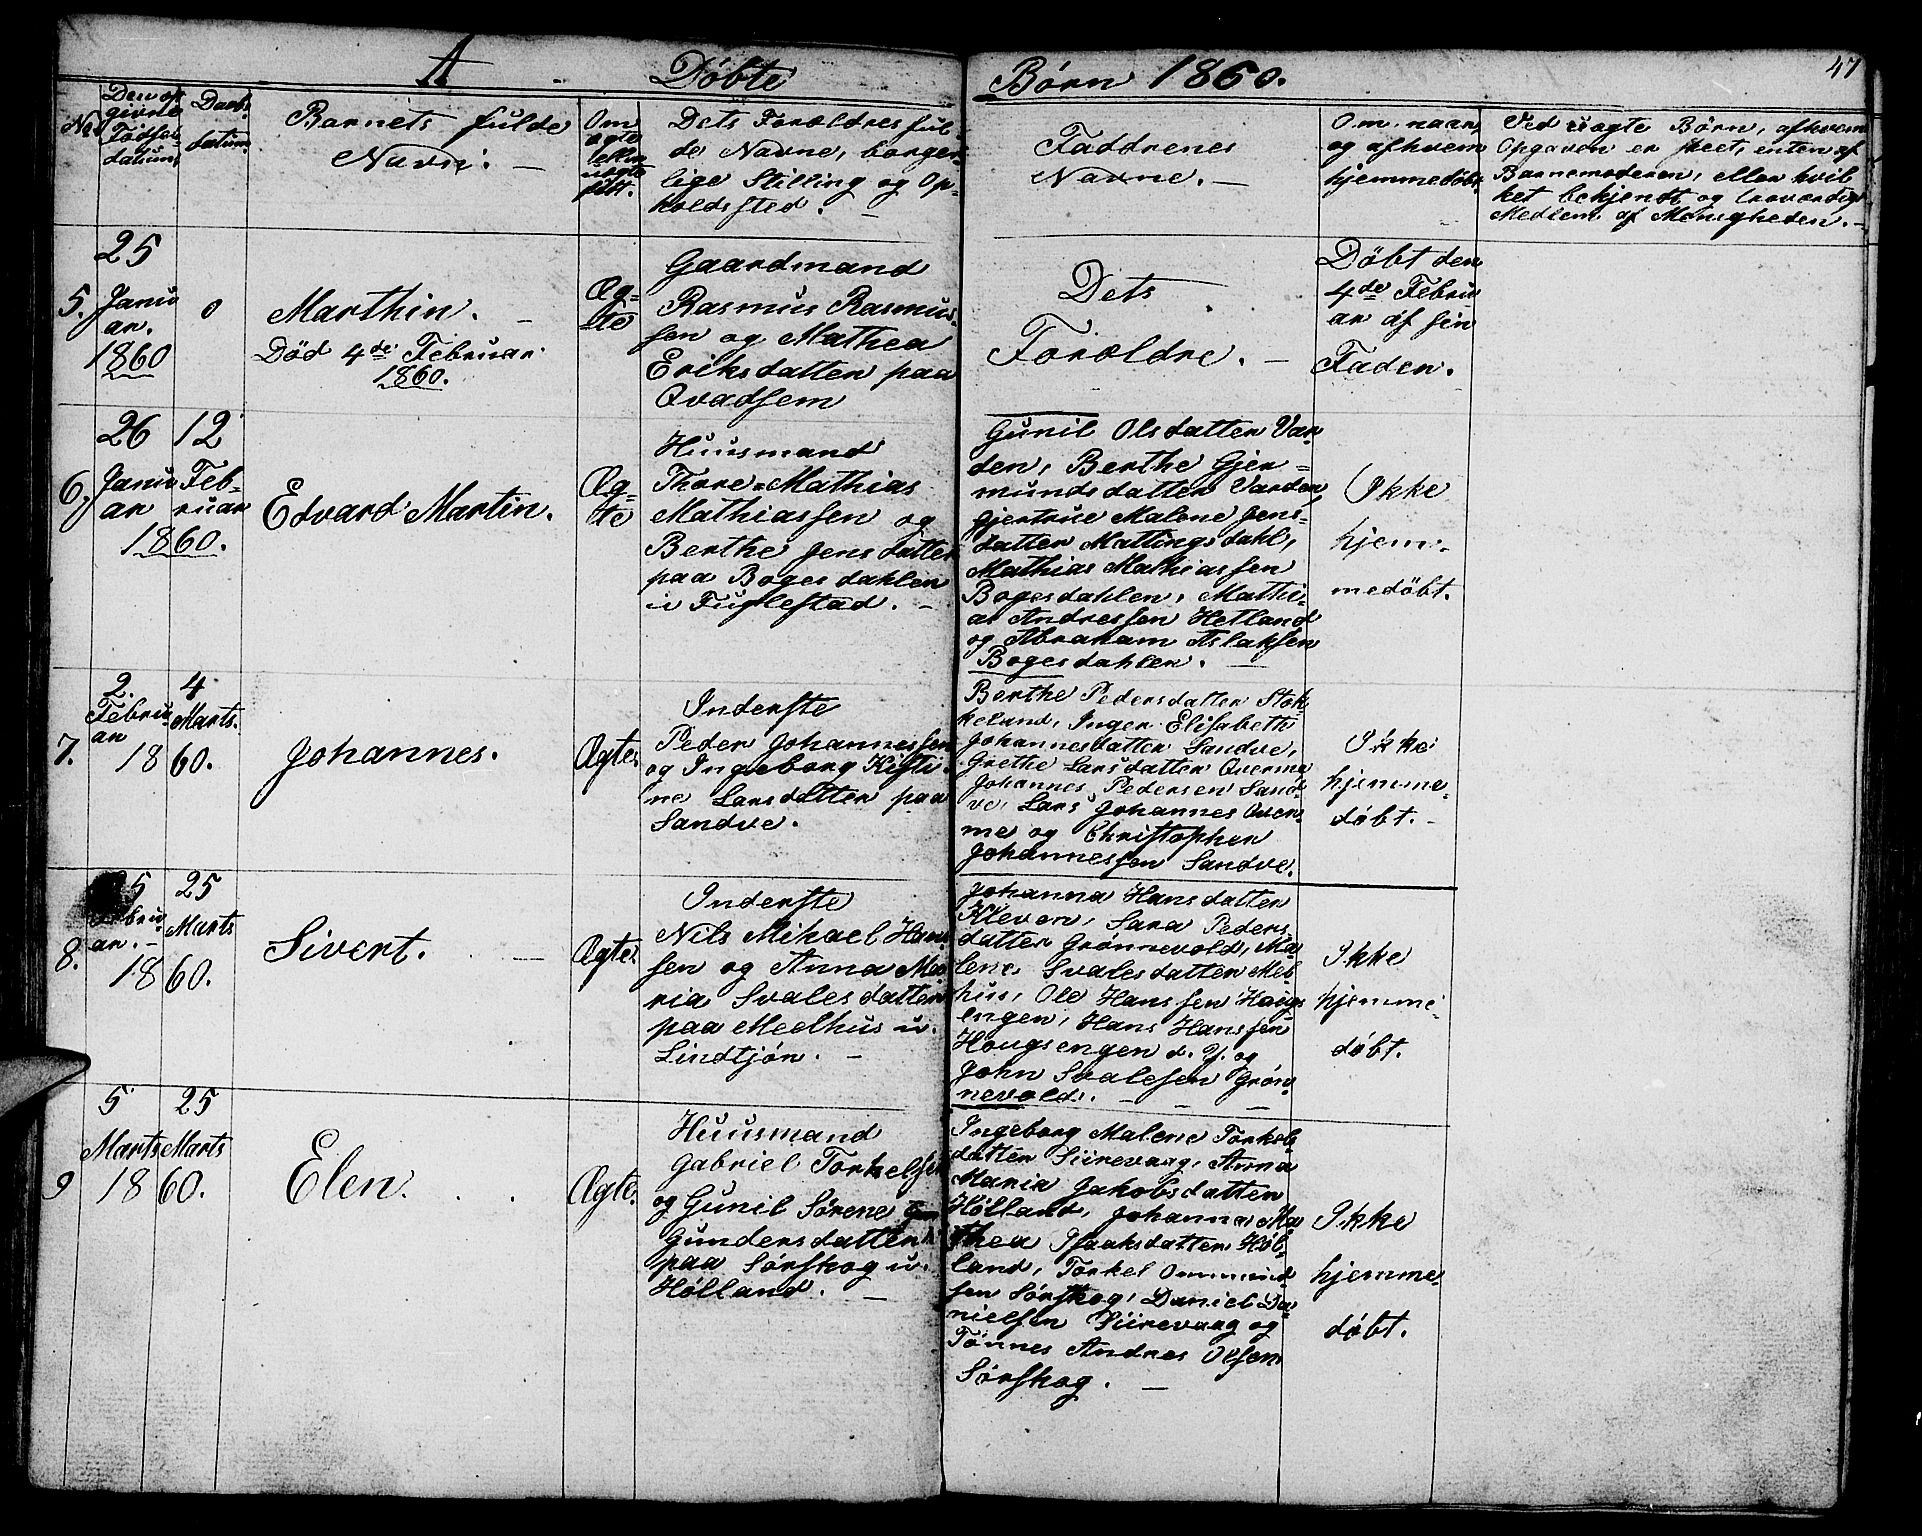 A Døbte Børn 1860. 47
No
Den op
givne
Fødsels
datum.
Daabs
datum.
Barnets fulde
Navn. —
Om
ægte
eller
uægte
født.
Dets Forældres ful-
de Navne, borger-
lige Stilling og Op-
holdssted. —
Faddrenes
Navne. —
Om, naar,
og afhvem
hjemmedøbt.
Ved uægte Børn, afhvem
Opgaven er skeet, enten af
Barnemoderen, eller hvil
ket bekjendt og troværdigt
Medlem af Menigheden. —
5.
25
Janu
ar.
1860
0
Marthin. —
Død 4de Februar
1860.
Æg=
te
Gaardmand
Rasmus Rasmus-
sen og Mathea
Eriksdatter paa
Qvadsem
Dets
Forældre. —
Døbt den
4de Febru
ar af sin
Fader.
6.
26
Janu
ar
12
Feb=
ruar
1860.
Edvard Martin.
Æg=
te
Huusmand
Thore Mathias
Mathiassen og
Berthe Jensdatter
paa Bogesdahlen
u Fuglestad. —
Gunil Olsdatter Var
den, Berthe Gjer=
mundsdatter Varden,
Gjertrue Malene Jens-
datter Mattingsdahl,
Mathias Mathiassen
Bogesdahlen, Mathi-
as Andressen Hetland
og Abraham Aslaksen
Bogesdahlen. —
Ikke
hjem-
medøbt.
7.
2
Febru
ar
4
Marts.
1860.
Johannes.
Ægte.
Inderste
Peder Johannessen
og Ingeborg Kisti-
ne Larsdatter paa
Sandve.
Berthe Pedersdatter Stok-
keland, Inger Elisabeth
Johannesdatter Sandve,
Grethe Larsdatter Qverme
Johannes Pedersen Sand-
ve, Lars Johannes Qver-
me og Christopher
Johannessen Sandve.
Ikke
hjemme-
døbt. —
8.
25
Febru
ar. —
25
Marts
1860.
Sivert. —
Ægte.
Inderste
Nils Mikael Han-
sen og Anna Ma-
ria Svalesdatter
paa Medhus u.
Lindtjøn. —
Johanna Hansdatter
Kleven, Sara Peders
datter Grønnevold, Ma-
lene Svalesdatter Med
hus, Ole Hanssen Haugs
engen, Hans Hanssen
Hougsengen d. Y. og
John Svalesen Grøn
nevold. — — —
Ikke
hjemme-
døbt.
9
5
Marts
25
Marts
1860.
Elen.
Ægte.
Huusmand
Gabriel Torkelsen
og Gunil Sørene
Gundersdatter
paa Sørskog u.
Hølland. —
Ingeborg Malene Torkels
datter Siirevaag, Anna
Maria Jakobsdatter
Hølland, Johanna Ma
thea Isaaksdatter Høl-
land, Torkel Ommund
sen Sørskog, Daniel Da-
nielsen Siirevaag og
Tønnes Andreas Olsen
Sørskog. —
Ikke
hjemme
døbt.